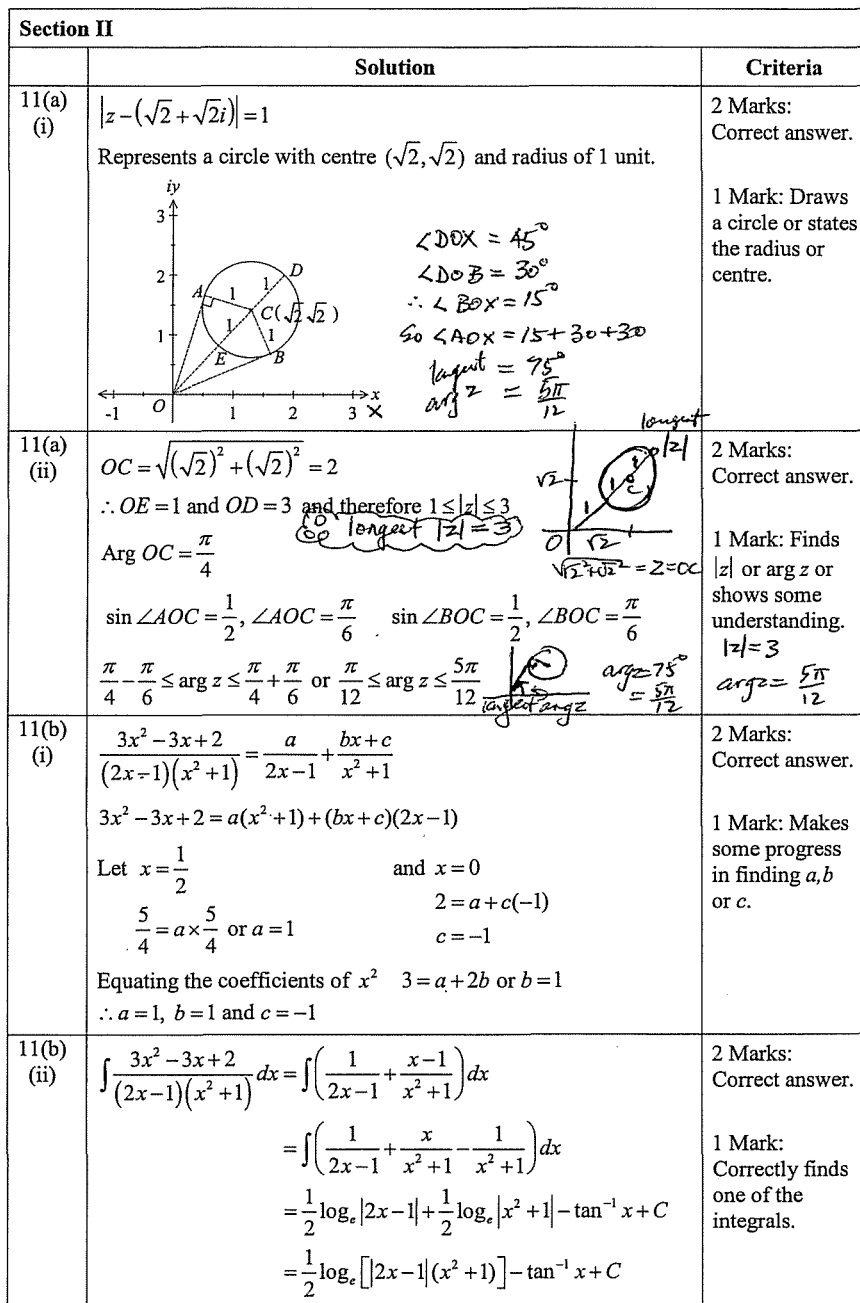 Section II
Solution
Criteria
11(a)
(i)
|z−(√2+√2i)|=1
Represents a circle with centre (√2,√2) and radius of 1 unit.
iy
3
2
1
A
1
1
D
1
C(√2,√2)
1
E
B
O
-1
1
2
3
x
X
∠DOX = 45°
∠DOB = 30°
∴ ∠BOX = 15°
So ∠AOX = 15+30+30
largest = 75°
arg z = 5π/12
2 Marks:
Correct answer.
1 Mark: Draws
a circle or states
the radius or
centre.
11(a)
(ii)
OC=√((√2)²+(√2)²)=2
∴OE=1 and OD=3 and therefore 1≤|z|≤3
∴ longest |z|=3
Arg OC=π/4
sin∠AOC=1/2, ∠AOC=π/6 sin∠BOC=1/2, ∠BOC=π/6
π/4−π/6≤arg z≤π/4+π/6 or π/12≤arg z≤5π/12
longest
|z|
√2
1
1
1
C
O
√2
√(√2²+√2²) = 2=OC
largest argz
argz=75°
= 5π/12
2 Marks:
Correct answer.
1 Mark: Finds
|z| or arg z or
shows some
understanding.
|z|=3
argz= 5π/12
11(b)
(i)
(3x²−3x+2)/((2x−1)(x²+1))=a/(2x−1)+(bx+c)/(x²+1)
3x²−3x+2=a(x²+1)+(bx+c)(2x−1)
Let x=1/2 and x=0
5/4=a×5/4 or a=1 2=a+c(−1)
c=−1
Equating the coefficients of x² 3=a+2b or b=1
∴a=1, b=1 and c=−1
2 Marks:
Correct answer.
1 Mark: Makes
some progress
in finding a,b
or c.
11(b)
(ii)
∫(3x²−3x+2)/((2x−1)(x²+1))dx=∫(1/(2x−1)+(x−1)/(x²+1))dx
=∫(1/(2x−1)+x/(x²+1)−1/(x²+1))dx
=1/2 logₑ|2x−1|+1/2 logₑ|x²+1|−tan⁻¹x+C
=1/2 logₑ[|2x−1|(x²+1)]−tan⁻¹x+C
2 Marks:
Correct answer.
1 Mark:
Correctly finds
one of the
integrals.